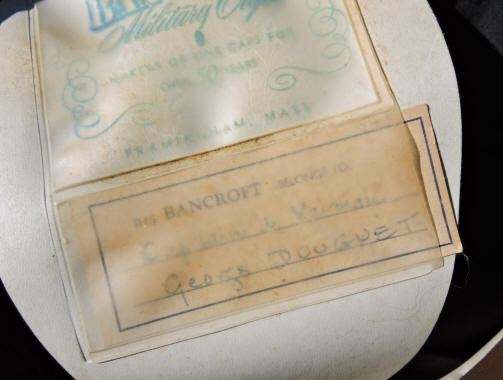 BANCROFT
Military Caps
MAKERS OF FINE CAPS FOR
OVER 50 YEARS
FRAMINGHAM, MASS
THIS BANCROFT BELONGS TO
George DOUGUET